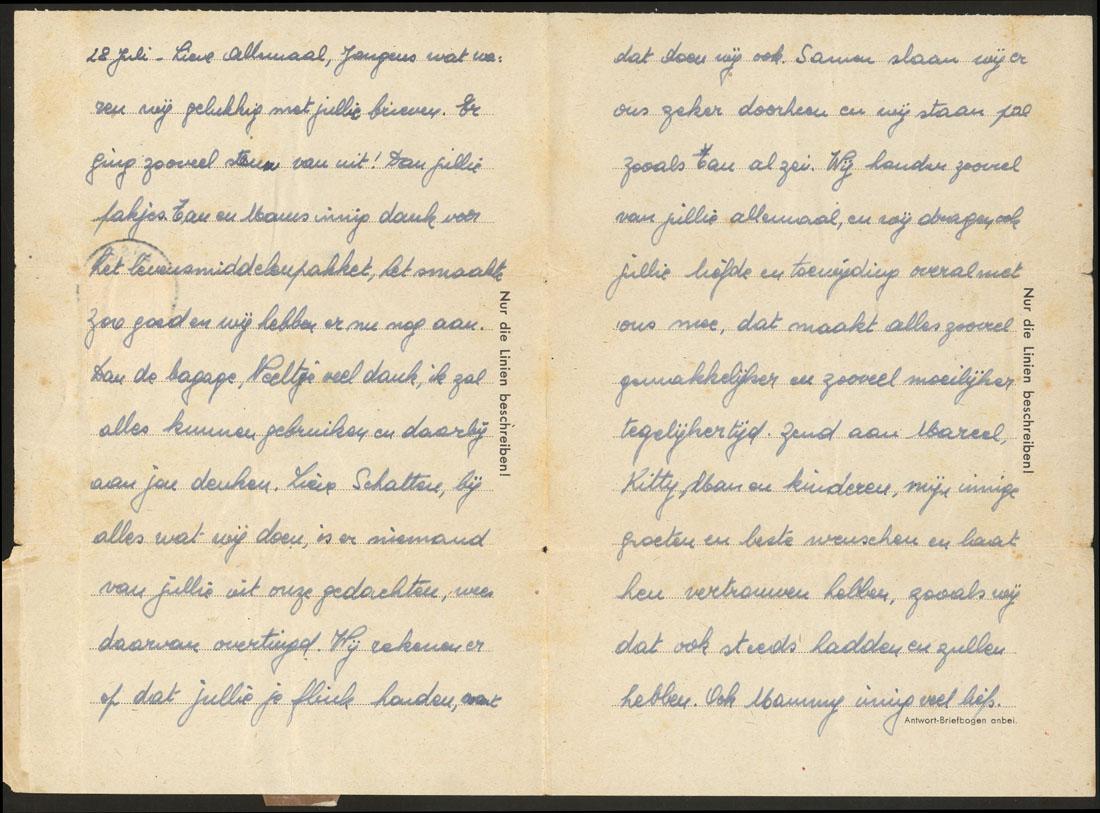 28 Juli - Lieve Allemaal, Jongens wat wa-
ren wij gelukkig met jullie brieven. Er
ging zooveel steun van uit! Dan jullie
pakjes. Eau en Mams innig dank voor
het levensmiddelenpakket, het smaakte
zoo goed en wij hebben er nu nog aan.
Dan de bagage, Neeltje veel dank, ik zal
alles kunnen gebruiken en daarbij
aan jou denken. Lieve Schatten, bij
alles wat wij doen, is er niemand
van jullie uit onze gedachten, wees
daarvan overtuigd. Wij rekenen er
op dat jullie je flink houden, want
Nur die Linien beschreiben!
dat doen wij ook. Samen slaan wij er
ons zeker doorheen en wij staan pal
zooals al zei. Wij houden zooveel
van jullie allemaal, en wij dragen ook
jullie liefde en toewijding overal met
ons mee, dat maakt alles zooveel
gemakkelijker en zooveel moeilijker
tegelijkertijd. Zend aan Marcel,
Kitty, Man en kinderen, mijn innige
groeten en beste wenschen en laat
hen vertrouwen hebben, zooals wij
dat ook steeds hadden en zullen
hebben. Ook Mammy innig veel liefs.
Nur die Linien beschreiben!
Antwort-Briefbogen anbei.